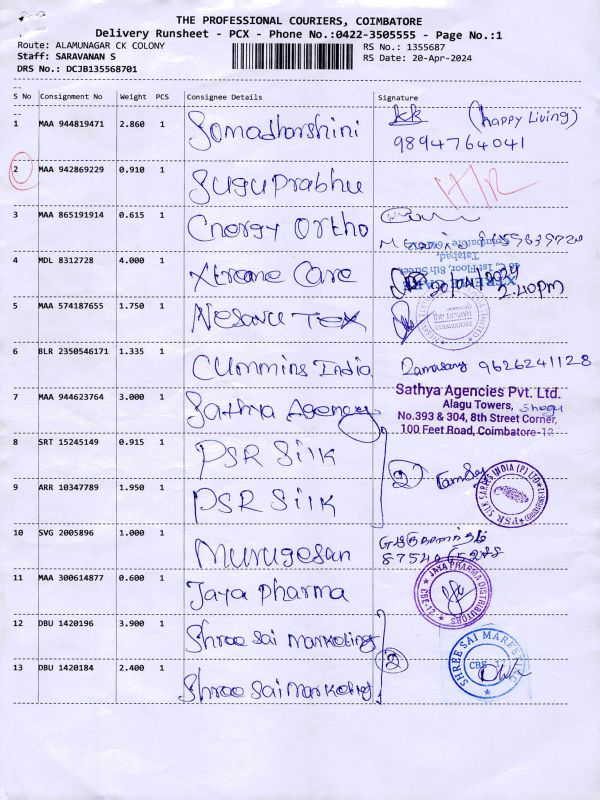 THE PROFESSIONAL COURIERS, COIMBATORE
Delivery Runsheet - PCX - Phone No.:0422-3505555 - Page No.:1
Route: ALAMUNAGAR CK COLONY
Staff: SARAVANAN S
DRS No.: DCJB135568701
RS No.: 1355687
RS Date: 20-Apr-2024
S No Consignment No Weight PCS Consignee Details Signature
1 MAA 944819471 2.860 1 Somadharshini KK (happy Living)
9894764041
2 MAA 942869229 0.910 1 Suguprabhu
3 MAA 865191914 0.615 1 Energy Ortho
4 MDL 8312728 4.000 1 Xtreme Care
2.40pm
5 MAA 574187655 1.750 1 Nesavu Tex
6 BLR 2350546171 1.335 1 Cummins India 9626241128
7 MAA 944623764 3.000 1 Sathya Agency
Sathya Agencies Pvt. Ltd.
Alagu Towers,
No.393 & 304, 8th Street Corner,
100 Feet Road, Coimbatore-12
8 SRT 15245149 0.915 1 PSR Silk
2
9 ARR 10347789 1.950 1 PSR Silk
PSR SILK SAREES INDIA (P) LTD
10 SVG 2005896 1.000 1 Murugesan
11 MAA 300614877 0.600 1 Jaya Pharma
JAYA PHARMA DISTRIBUTORS
12 DBU 1420196 3.900 1 Shree Sai Marketing
2
SHREE SAI MARKETING
13 DBU 1420184 2.400 1 Shree Sai Marketing